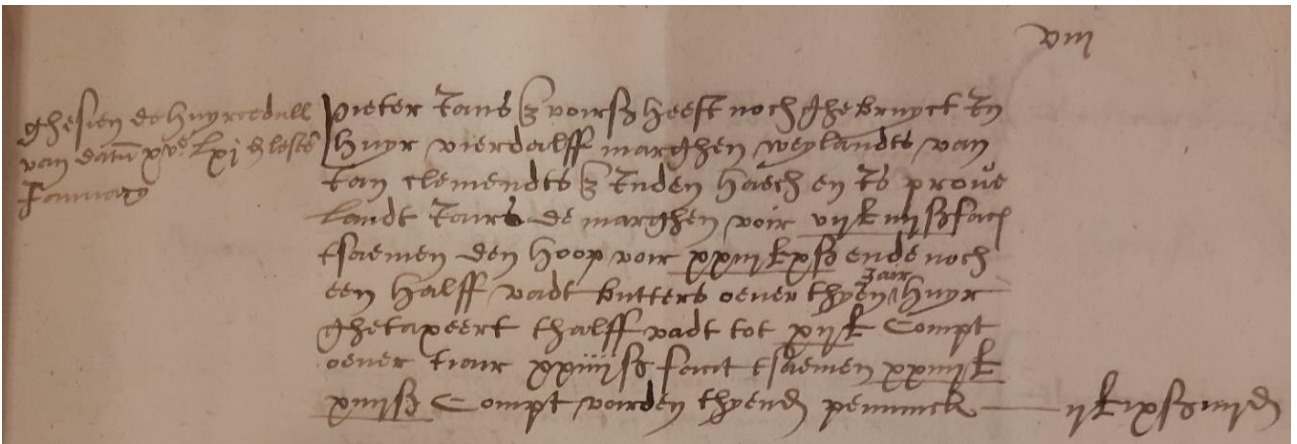 viij
ghesien de huyrcedull
van datu xvc lxj de leste
January
Pieter Jans z voirsz heeft noch ghebruyct In
huyr vierdalff marghen weylandts van
Jan Clemendts z Inden haech en Is prove
landt Jairs de marghen voir
tsaemen den hoop voir xxiij £ x ß ende noch
een halff vadt butters oever thyen Jair huyr
ghetaxeert thalff vadt tot xij £ Compt
oever tiair xxiiij ß facit tsaemen xxiiij £
xiiij ß Compt voirden thyend penninck — ij £ ix ß iiij d